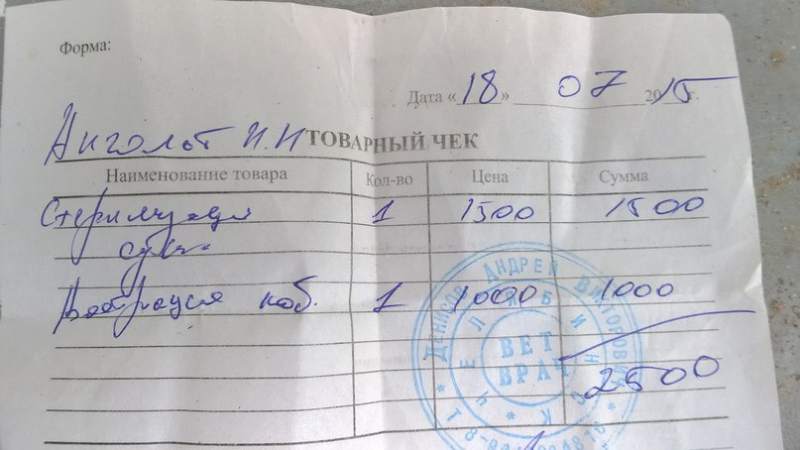 Форма:
Дата « 18 » 07 2015 г.
Ангольт Н.Н
ТОВАРНЫЙ ЧЕК
Наименование товара Кол-во Цена Сумма
Стерилизация 1 1500 1500
суки
коб. 1 1000 1000
2500
Денисов Андрей Викторович
Челябинск
ВЕТ
ВРАЧ